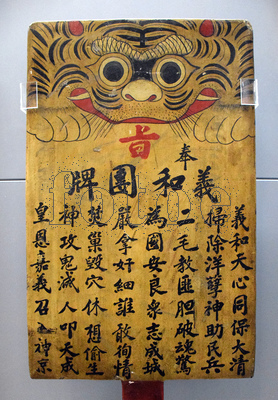 奉
義和團牌
義和天心同保大清
掃除洋孽神助民兵
二毛教匪胆破魂驚
為國安良衆志成城
嚴拿奸細誰敢徇情
巢毀穴休想偷生
神攻鬼滅人叩天成
皇恩嘉義召神京
fotoe